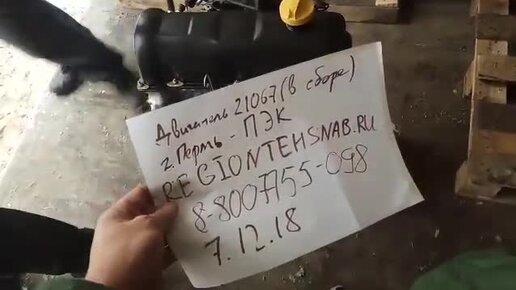 Двигатель 21067 (в сборе)
г. Пермь - ПЭК
REGIONTEHSNAB.RU
8-8007755-098
7.12.18